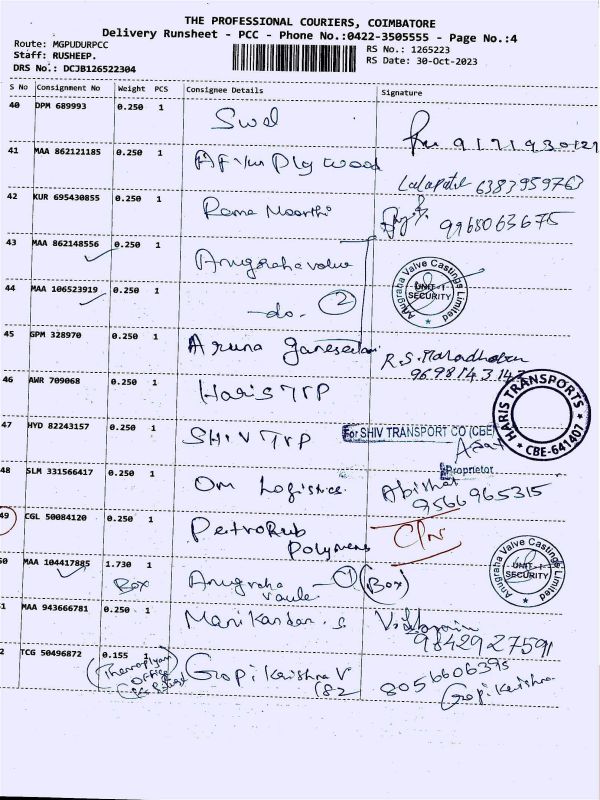 THE PROFESSIONAL COURIERS, COIMBATORE
Delivery Runsheet - PCC - Phone No.:0422-3505555 - Page No.:4
Route: MGPUDURPCC
RS No.: 1265223
Staff: RUSHEEP.
RS Date: 30-Oct-2023
DRS No.: DCJB126522304
S No Consignment No Weight PCS Consignee Details Signature
40 DPM 689993 0.250 1
41 MAA 862121185 0.250 1 Plywood
Lalapatil 6383959763
42 KUR 695430855 0.250 1 Rama Moorthi
9968063675
43 MAA 862148556 0.250 1 Anugraha valve
Anugraha Valve Castings Limited
UNIT-I
SECURITY
44 MAA 106523919 0.250 1 -do- 2
45 GPM 328970 0.250 1 Aruna
R.S.
46 AWR 709068 0.250 1 Haris TTP
HARIS TRANSPORTS
CBE-641407
47 HYD 82243157 0.250 1 SHIV TTP
For SHIV TRANSPORT CO (CBE)
Proprietor
48 SLM 331566417 0.250 1 Om Logistics.
9566965315
49 CGL 50084120 0.250 1 PetroRub
Polymers
50 MAA 104417885 1.730 1 Anugraha
Box 1 (Box)
Anugraha Valve Castings Limited
UNIT-I
SECURITY
51 MAA 943666781 0.250 1 Manikandan. S
9842927591
52 TCG 50496872 0.155 1 Gopi Krishna V
(82
8056606395
Gopi Krishna